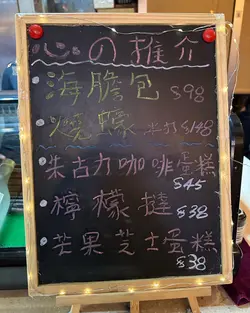 心の推介
海膽包 $98
燒蠔 半打$148
朱古力咖啡蛋糕
$45
檸檬撻 $38
芒果芝士蛋糕
$38